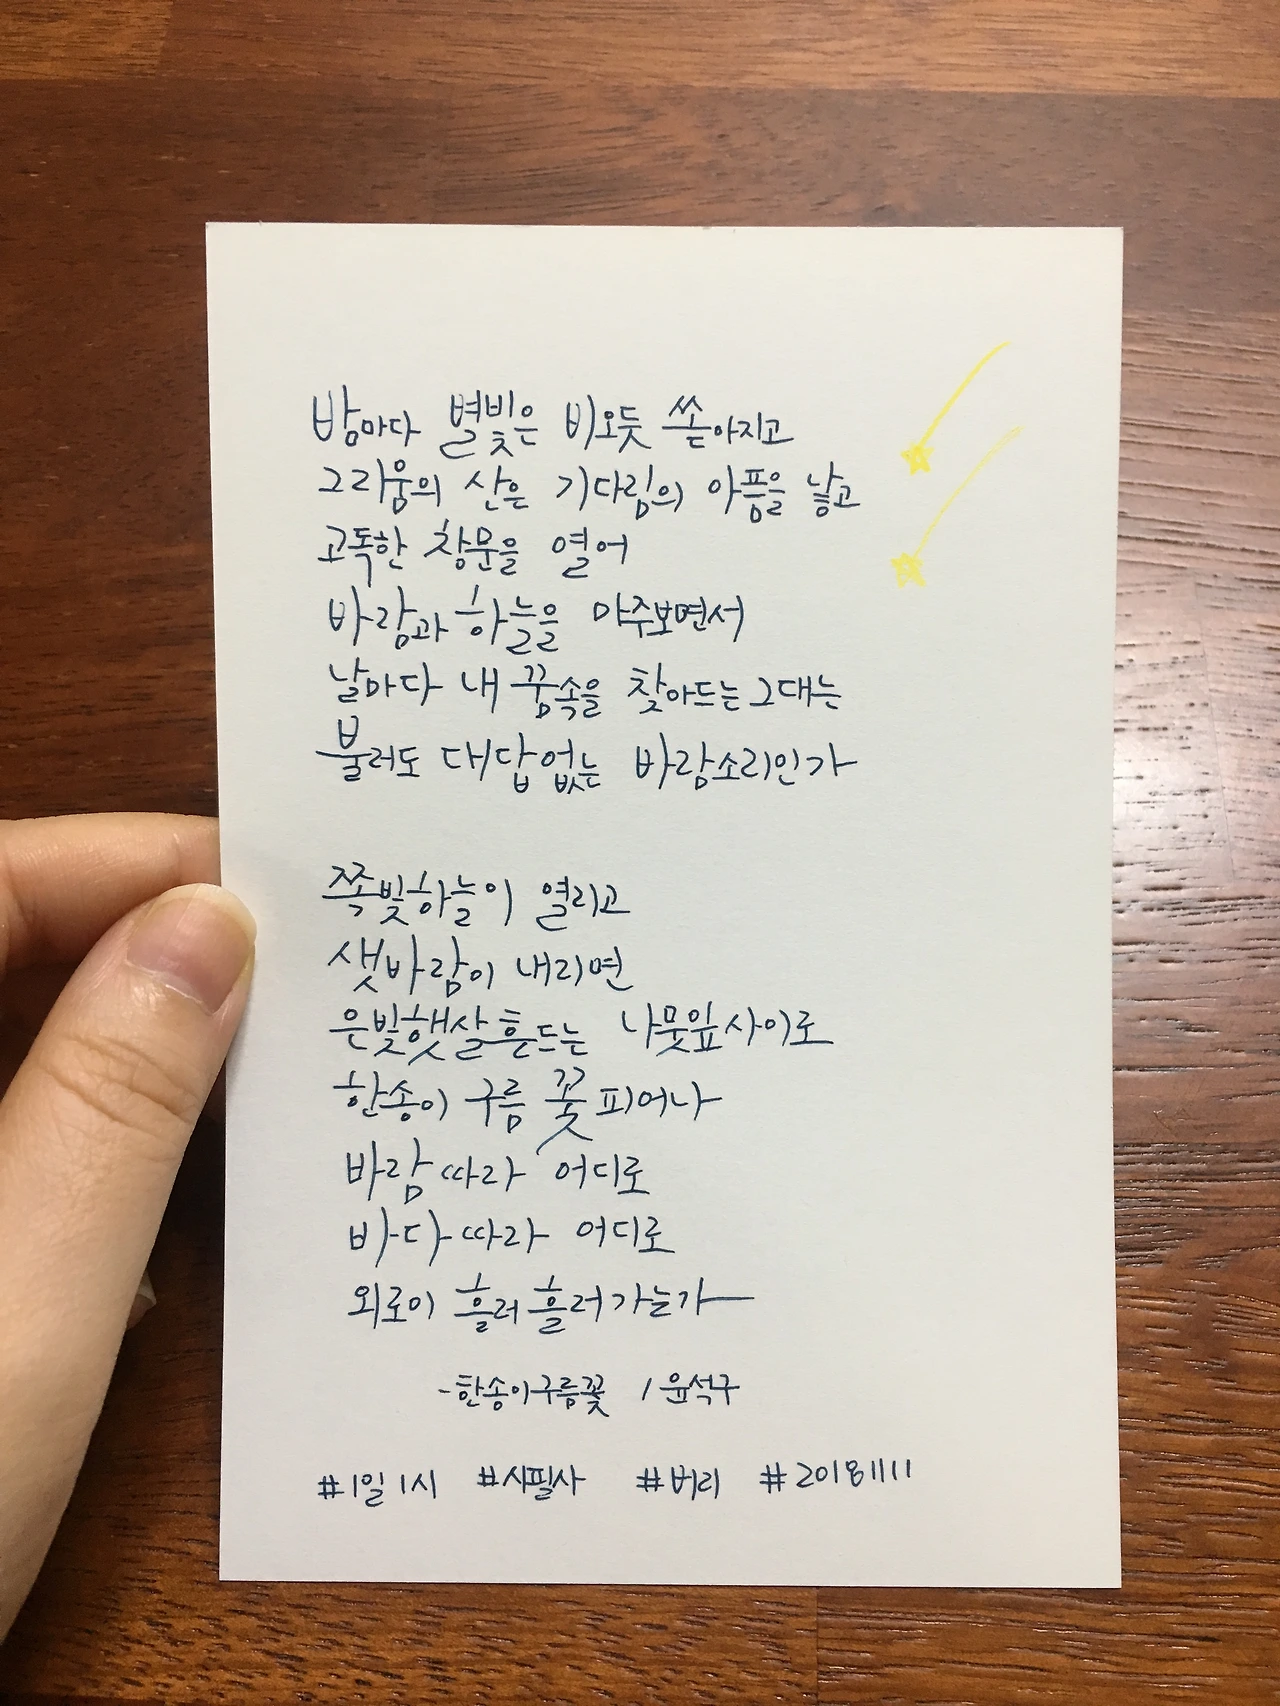 밤마다 별빛은 비오듯 쏟아지고
그리움의 산은 기다림의 아픔을 낳고
고독한 창문을 열어
바람과 하늘을 마주보면서
날마다 내 꿈속을 찾아드는 그대는
불러도 대답없는 바람소리인가
쪽빛하늘이 열리고
샛바람이 내리면
은빛햇살흔드는 나뭇잎사이로
한송이 구름 꽃 피어나
바람 따라 어디로
바다 따라 어디로
외로이 흘러 흘러 가는가
-한송이구름꽃 / 윤석구
#1일 1시 #시필사 #버리 #20181111